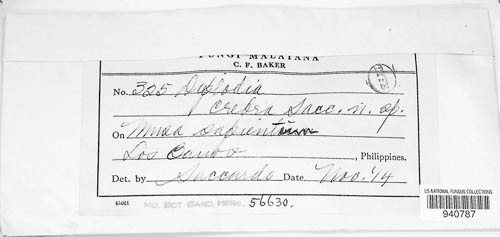 FUNGI MALAYANA
C. F. BAKER
No. 325 Diplodia
crebra Sacc. n. sp.
On Musa sapientum
Los Banos, Philippines.
Det. by Saccardo Date Nov. '14
MO. BOT. GARD. HERB. 56630.
US NATIONAL FUNGUS COLLECTIONS
940787